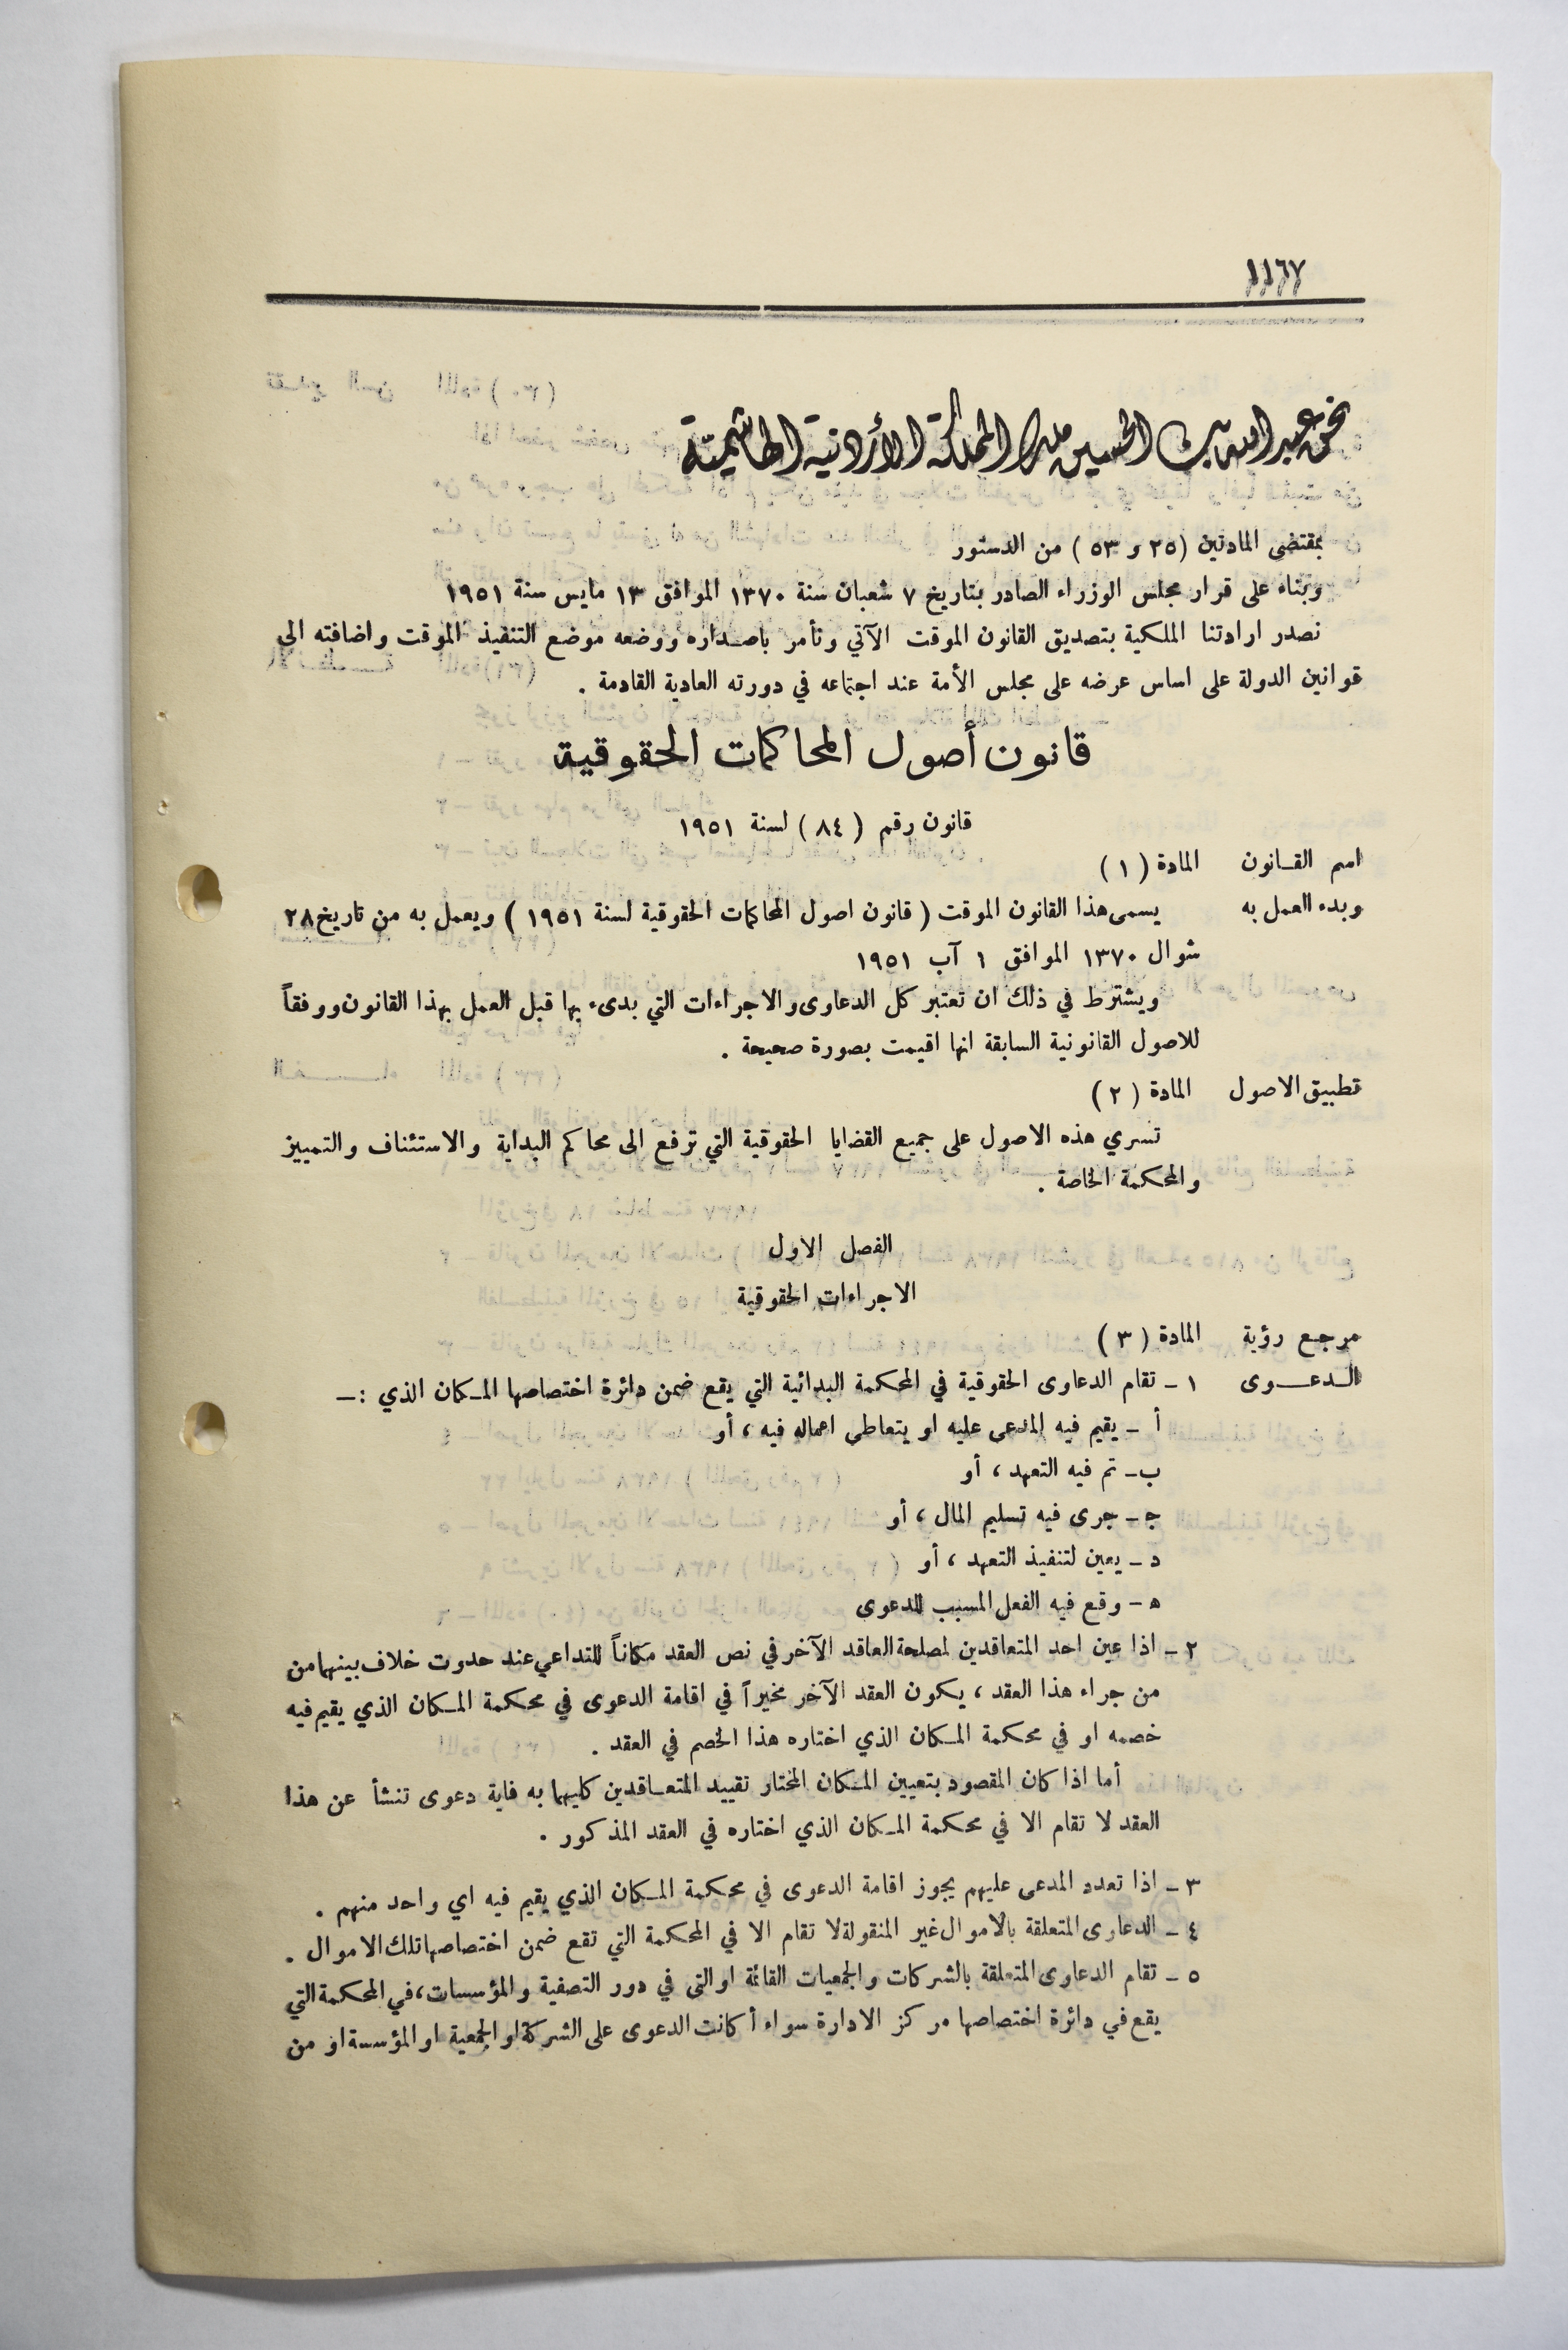 ١١٦٧
نحن عبد الله بن الحسين ملك المملكة الأردنية الهاشمية
بمقتضى المادتين (٢٥ و ٥٣ ) من الدستور
وبناء على قرار مجلس الوزراء الصادر بتاريخ ٧ شعبان سنة ١٣٧٠ الموافق ١٣ مايس سنة ١٩٥١
نصدر ارادتنا الملكية بتصديق القانون الموقت الآتي ونأمر باصداره ووضعه موضع التنفيذ الموقت واضافته الى
قوانين الدولة على اساس عرضه على مجلس الأمة عند اجتماعه في دورته العادية القادمة .
قانون أصول المحاكمات الحقوقية
قانون رقم ( ٨٤ ) لسنة ١٩٥١
اسم القانون المادة ( ١ )
وبدء العمل به يسمى هذا القانون الموقت ( قانون اصول المحاكمات الحقوقية لسنة ١٩٥١ ) ويعمل به من تاريخ ٢٨
شوال ١٣٧٠ الموافق ١ آب ١٩٥١
ويشترط في ذلك ان تعتبر كل الدعاوى والاجراءات التي بدىء بها قبل العمل بهذا القانون ووفقاً
للاصول القانونية السابقة انها اقيمت بصورة صحيحة .
تطبيق الاصول المادة ( ٢ )
تسري هذه الاصول على جميع القضايا الحقوقية التي ترفع الى محاكم البداية والاستئناف والتمييز
والمحكمة الخاصة .
الفصل الاول
الاجراءات الحقوقية
مرجع رؤية المادة ( ٣ )
الدعوى ١ - تقام الدعاوى الحقوقية في المحكمة البدائية التي يقع ضمن دائرة اختصاصها المكان الذي :-
أ - يقيم فيه المدعى عليه او يتعاطى اعماله فيه ، أو
ب - تم فيه التعهد ، أو
ج - جرى فيه تسليم المال ، أو
د - يعين لتنفيذ التعهد ، أو
ه - وقع فيه الفعل المسبب للدعوى
٢ - اذا عين احد المتعاقدين لمصلحة العاقد الآخر في نص العقد مكاناً للتداعي عند حدوث خلاف بينهما من
من جراء هذا العقد ، يكون العقد الآخر مخيراً في اقامة الدعوى في محكمة المكان الذي يقيم فيه
خصمه او في محكمة المكان الذي اختاره هذا الخصم في العقد .
أما اذا كان المقصود بتعيين المكان المختار تقييد المتعاقدين كليهما به فاية دعوى تنشأ عن هذا
العقد لا تقام الا في محكمة المكان الذي اختاره في العقد المذكور .
٣ - اذا تعدد المدعى عليهم يجوز اقامة الدعوى في محكمة المكان الذي يقيم فيه اي واحد منهم .
٤ - الدعاوى المتعلقة بالاموال غير المنقولة لا تقام الا في المحكمة التي تقع ضمن اختصاصها تلك الاموال .
٥ - تقام الدعاوى المتعلقة بالشركات والجمعيات القائمة او التى في دور التصفية والمؤسسات ، في المحكمة التي
يقع في دائرة اختصاصها مركز الادارة سواء أكانت الدعوى على الشركة او الجمعية او المؤسسة او من